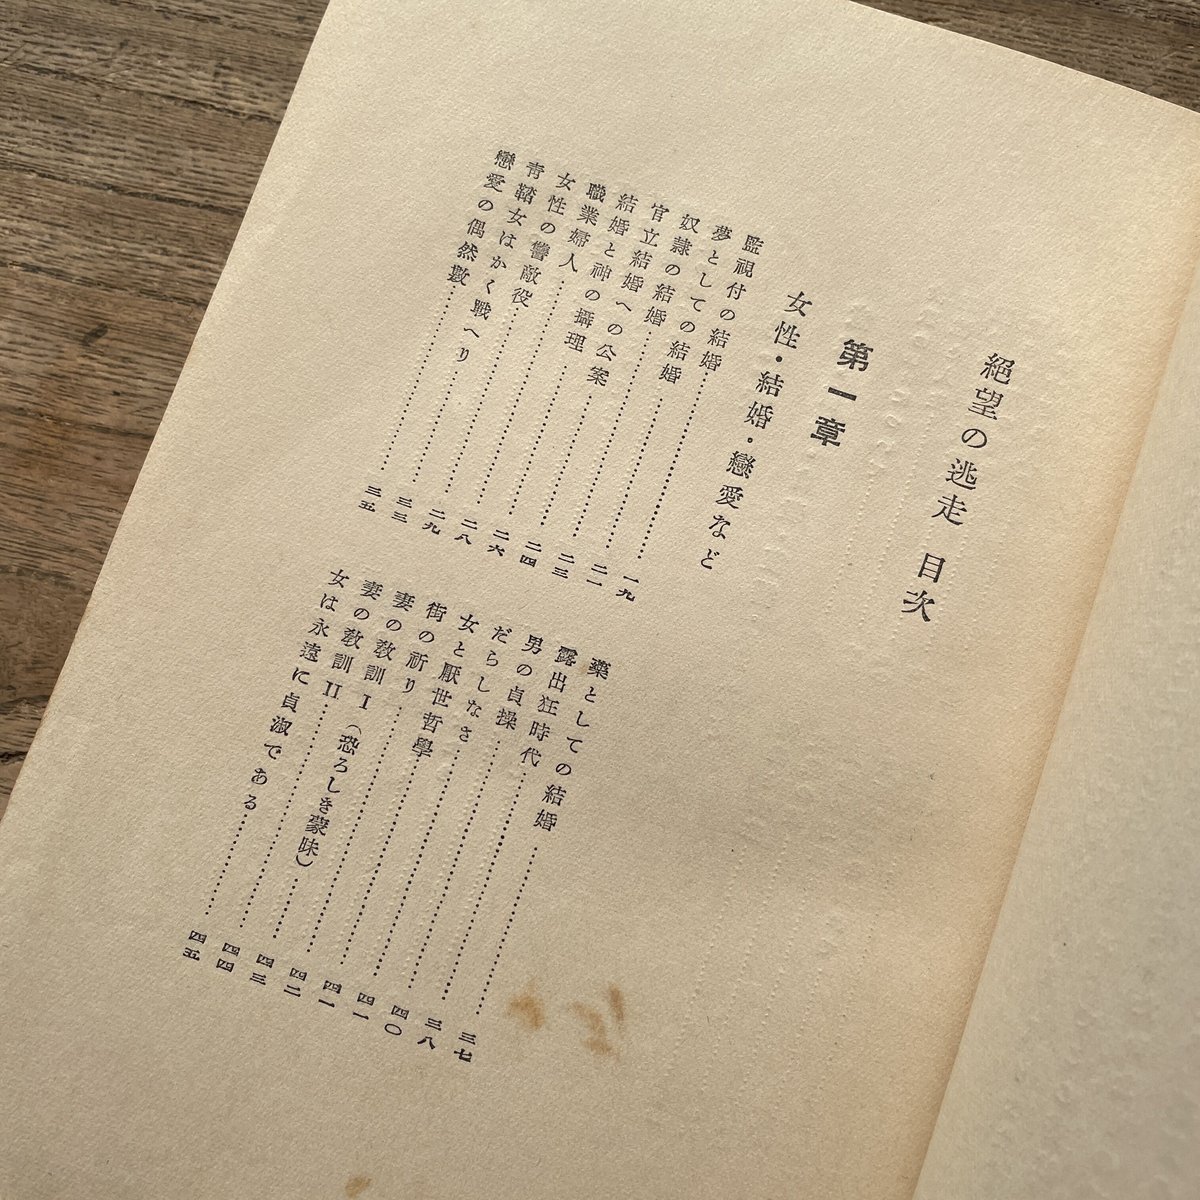 絕望の逃走 目次
第一章
女性・結婚・戀愛など
監視付の結婚……一九
夢としての結婚……二一
奴隷の結婚……二三
官立結婚への公案……二四
結婚と神の攝理……二六
職業婦人……二八
女性の讐敵役……二九
靑鞜女はかく戰へり……三三
戀愛の偶然數……三五
藥としての結婚……三七
露出狂時代……三八
男の貞操……四〇
だらしなさ……四一
女と厭世哲學……四一
街の祈り……四二
妻の敎訓Ⅰ(恐ろしき蒙昧)……四三
妻の敎訓Ⅱ……四四
女は永遠に貞淑である……四五